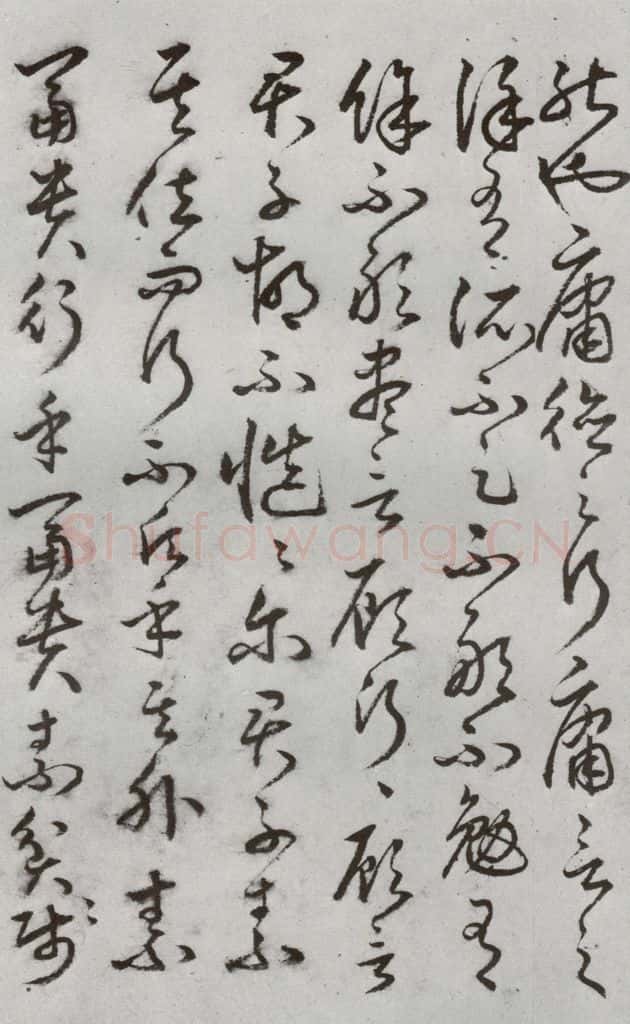 能也庸德之行庸言之
謹有所不足不敢不勉有
餘不敢盡言顧行〻顧言
君子胡不慥〻爾君子素
其位而行不願乎其外素
富貴行乎富貴素貧賤
Shufawang.CN